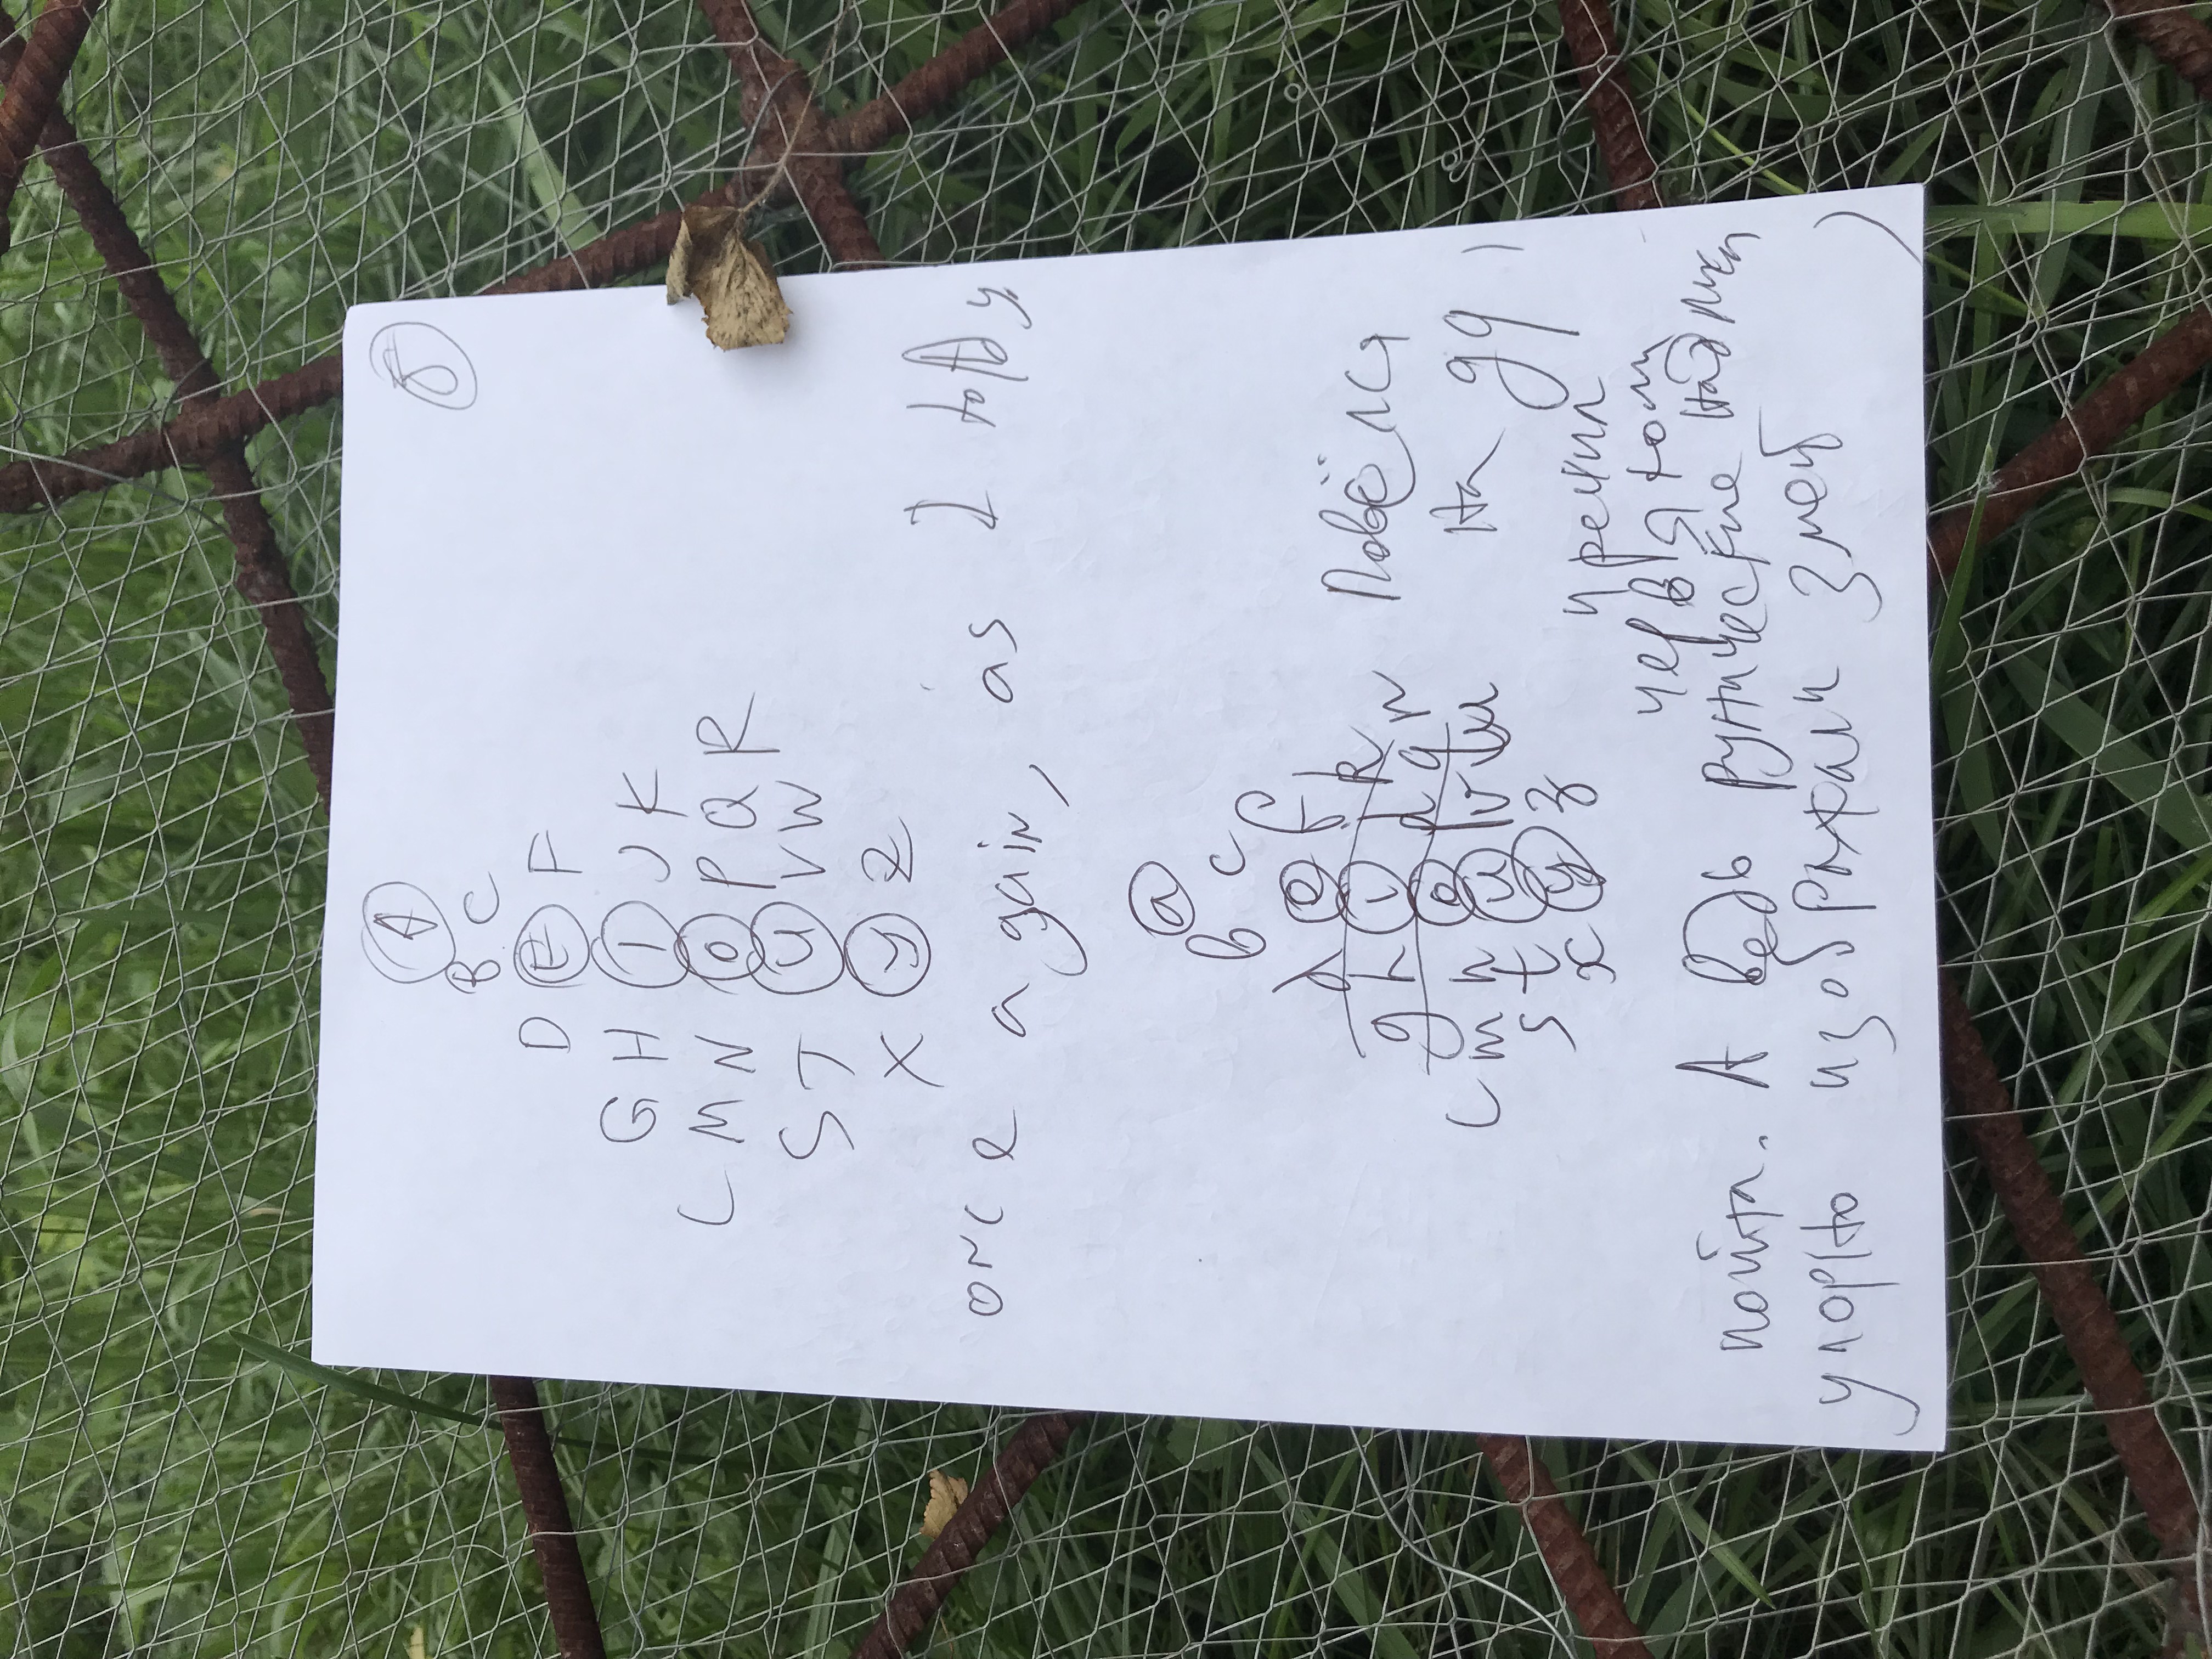 A
Б
B C
D E F
G H I J K
L M N O P Q R
S T U V W
X Y Z
once again, as I told y.
a
b c
d e f
g h i j k
l m n o p q r
s t u v w
x y z
Повёлся
на gq,
и решил
червяком
пойти. А ведь рунические надписи
упорно изображали змей)